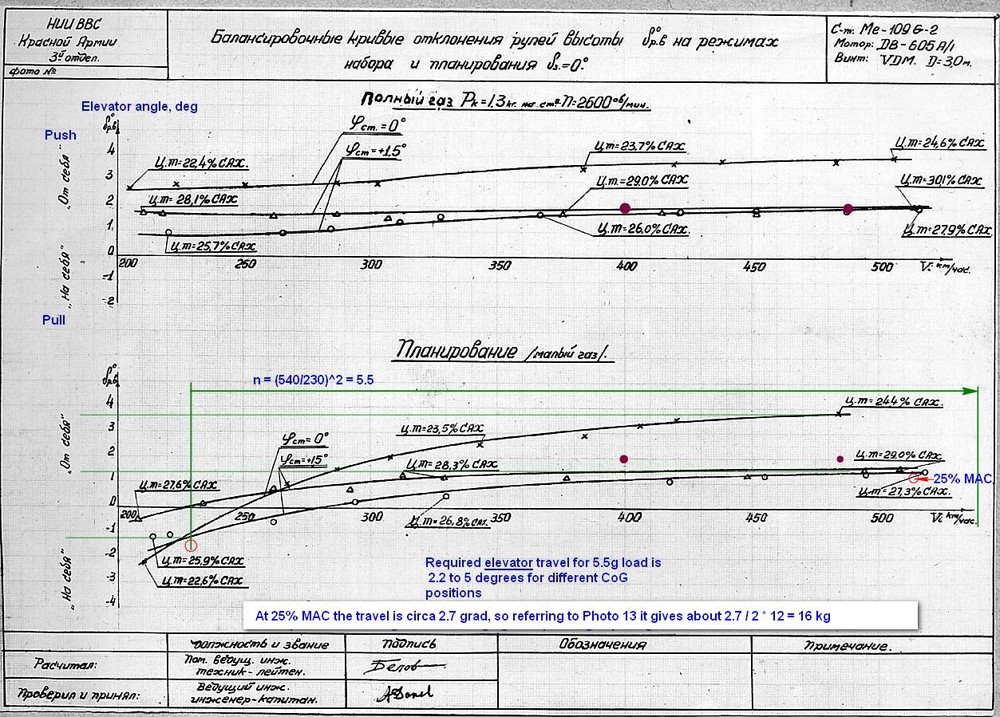 НИИ ВВС
Красной Армии
3й отдел.
фото №
Балансировочные кривые отклонения рулей высоты δр.в на режимах
набора и планирования δз.=0°.
С-т: Me-109 G-2
Мотор: DB-605 A/1
Винт: VDM. D=3,0м.
Полный газ Рк=1.3 кг. на см² n=2600 об/мин.
Elevator angle, deg
δ°р.в
Push
"От себя"
φст.=0°
φст=+1.5°
Ц.т=22.4% САХ.
Ц.т=28,1% САХ
Ц.т=25.7% САХ
Ц.т=23.7% САХ
Ц.т=24,6% САХ
Ц.т.=29.0% САХ
Ц.т=30.1 % САХ
Ц.т=26.0% САХ
Ц.т=27.9% САХ
4
3
2
1
0
-1
-2
200 250 300 350 400 450 500 V. км/час.
"На себя"
Pull
Планирование /малый газ/.
δ°р.в
n = (540/230)^2 = 5.5
"От себя"
4
3
2
1
0
-1
-2
-3
-4
Ц.т=24.4% САХ.
Ц.т=23,5% САХ
φст= 0°
φст=+1,5°
Ц.т=28,3% САХ
Ц.т=29.0% САХ
Ц.т=27.6% САХ
25% MAC
Ц.т=27,3% САХ.
200 250 300 350 400 450 500 V. км/час.
Ц.т=26,8% САХ.
Ц.т=25,9% САХ
Ц.т=22,6% САХ
"На себя"
Required elevator travel for 5.5g load is
2.2 to 5 degrees for different CoG
positions
At 25% MAC the travel is circa 2.7 grad, so referring to Photo 13 it gives about 2.7 / 2 * 12 = 16 kg
Должность и звание
Подпись
Обозначения
Примечание.
Расчитал:
Пом. ведущ. инж.
техник-лейтен.
Белов
Проверил и принял:
Ведущий инж.
инженер-капитан.